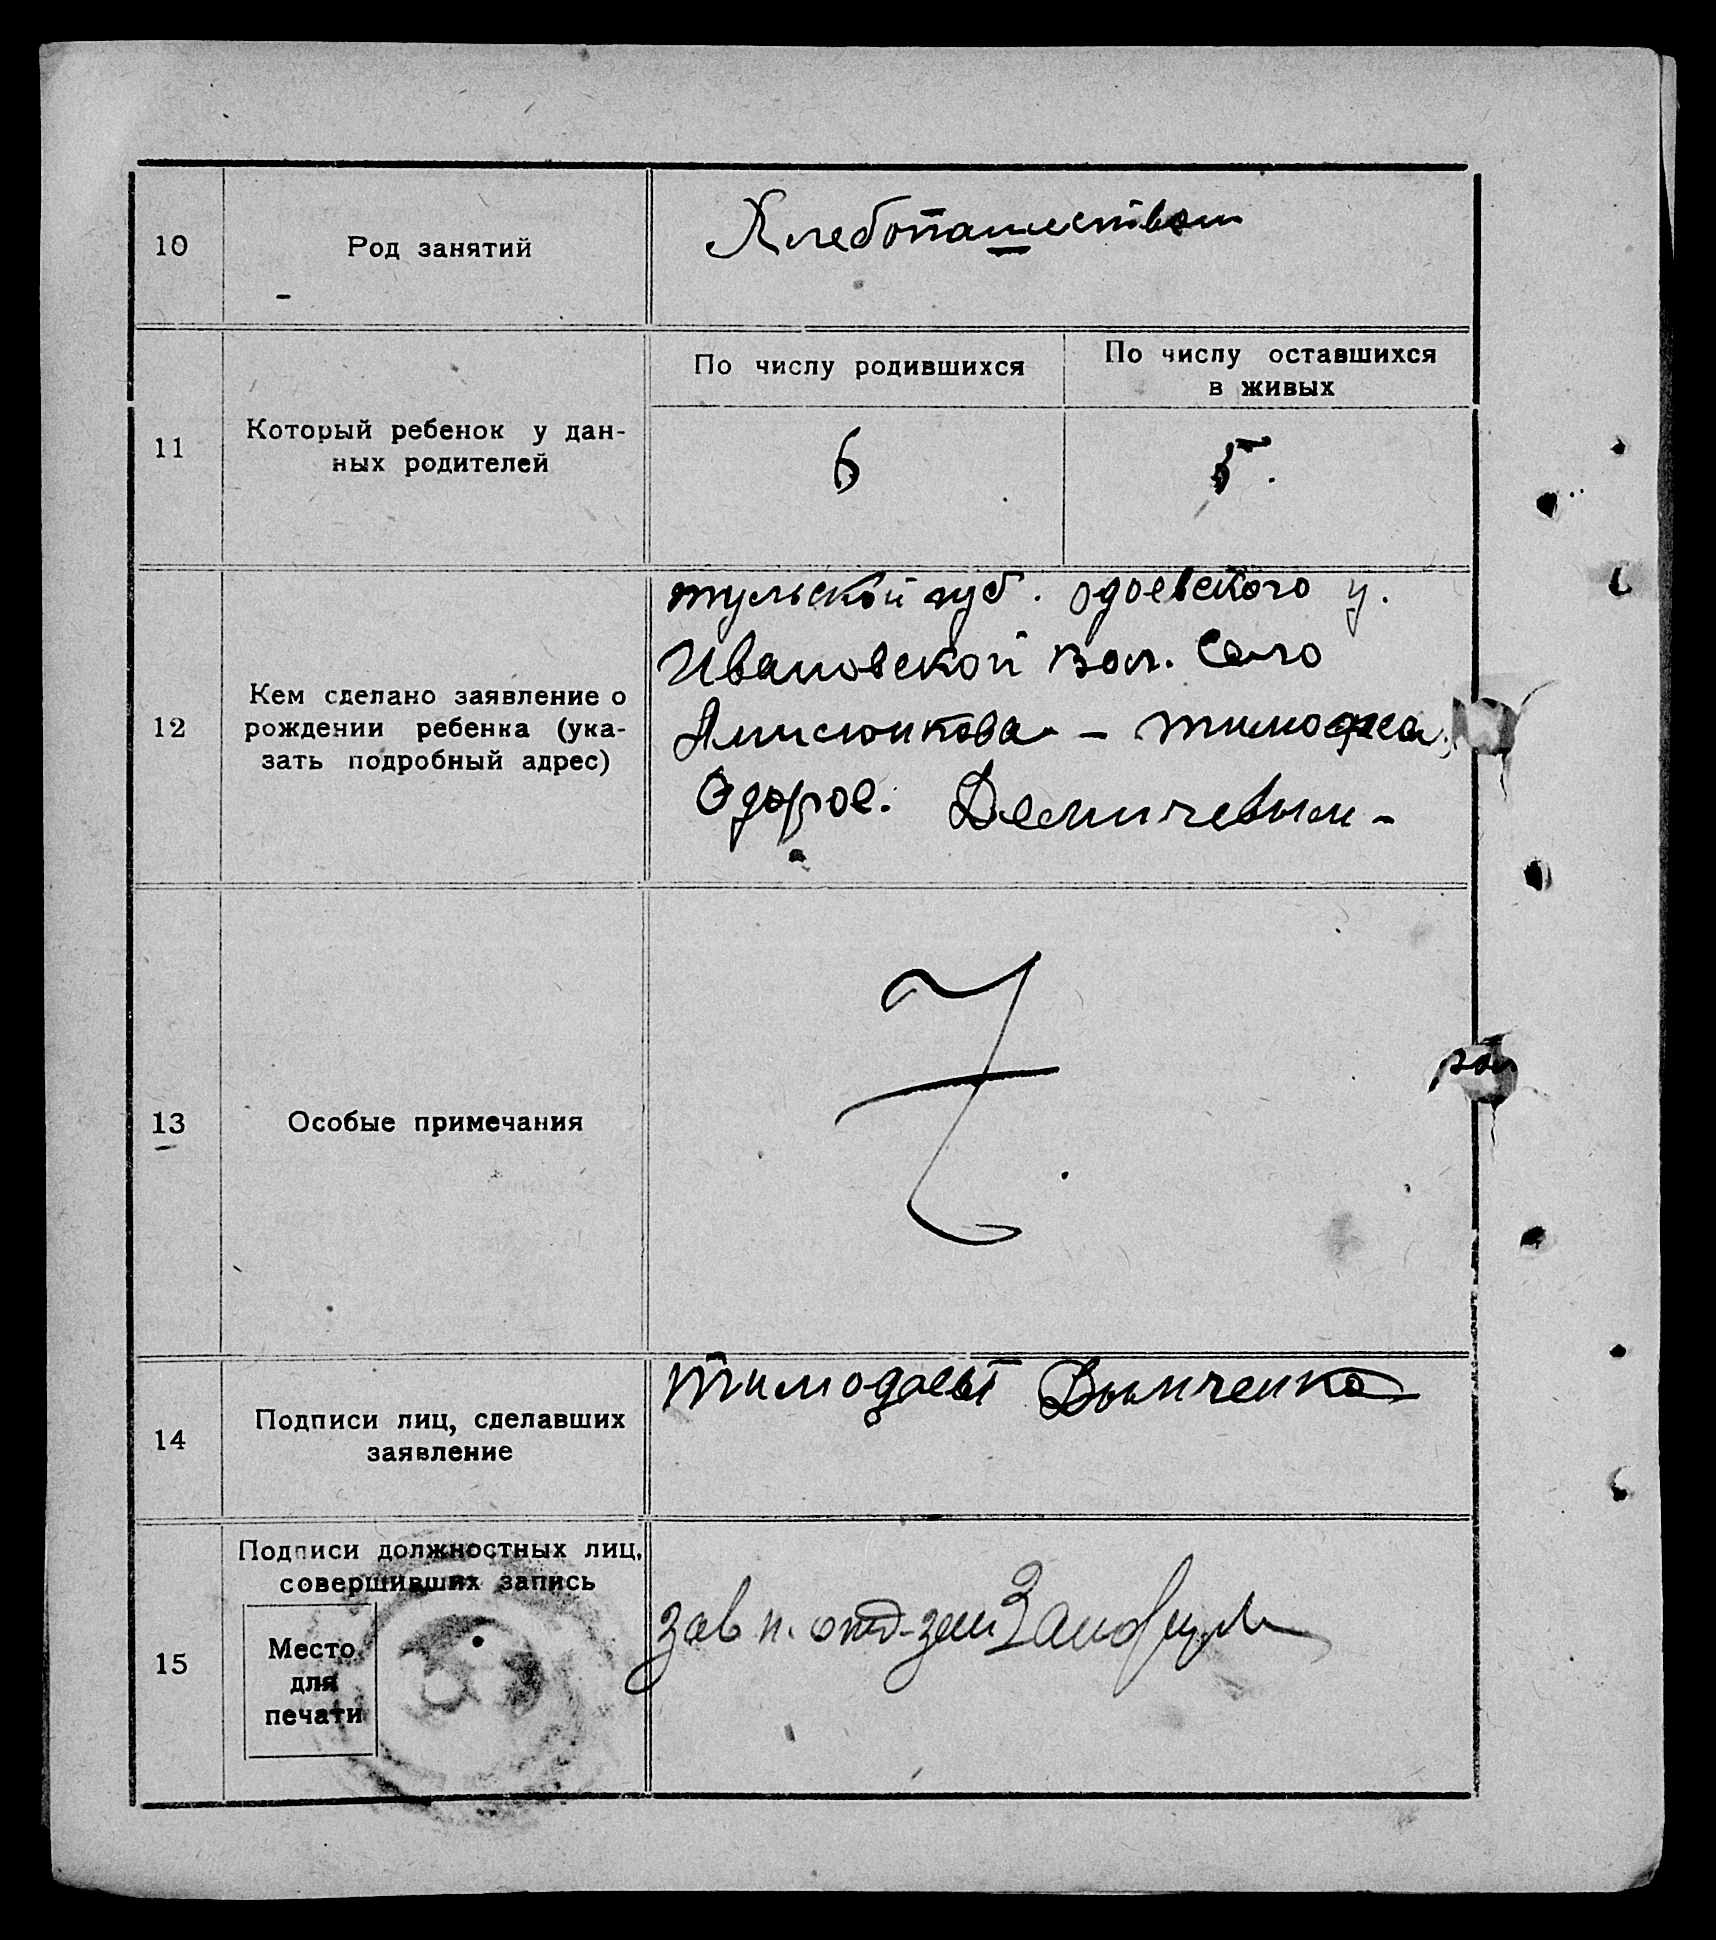 10
Род занятий
Хлебопашеством
11
Который ребенок у дан-
ных родителей
По числу родившихся
По числу оставшихся
в живых
6
5.
12
Кем сделано заявление о
рождении ребенка (ука-
зать подробный адрес)
тульской губ. одоевского у.
Ивановской вол. Село
Анисюнкова - тимофеа
Деничевым -
13
Особые примечания
14
Подписи лиц, сделавших
заявление
15
Подписи должностных лиц,
совершивших запись
Место
для
печати
зав п. отд-зем